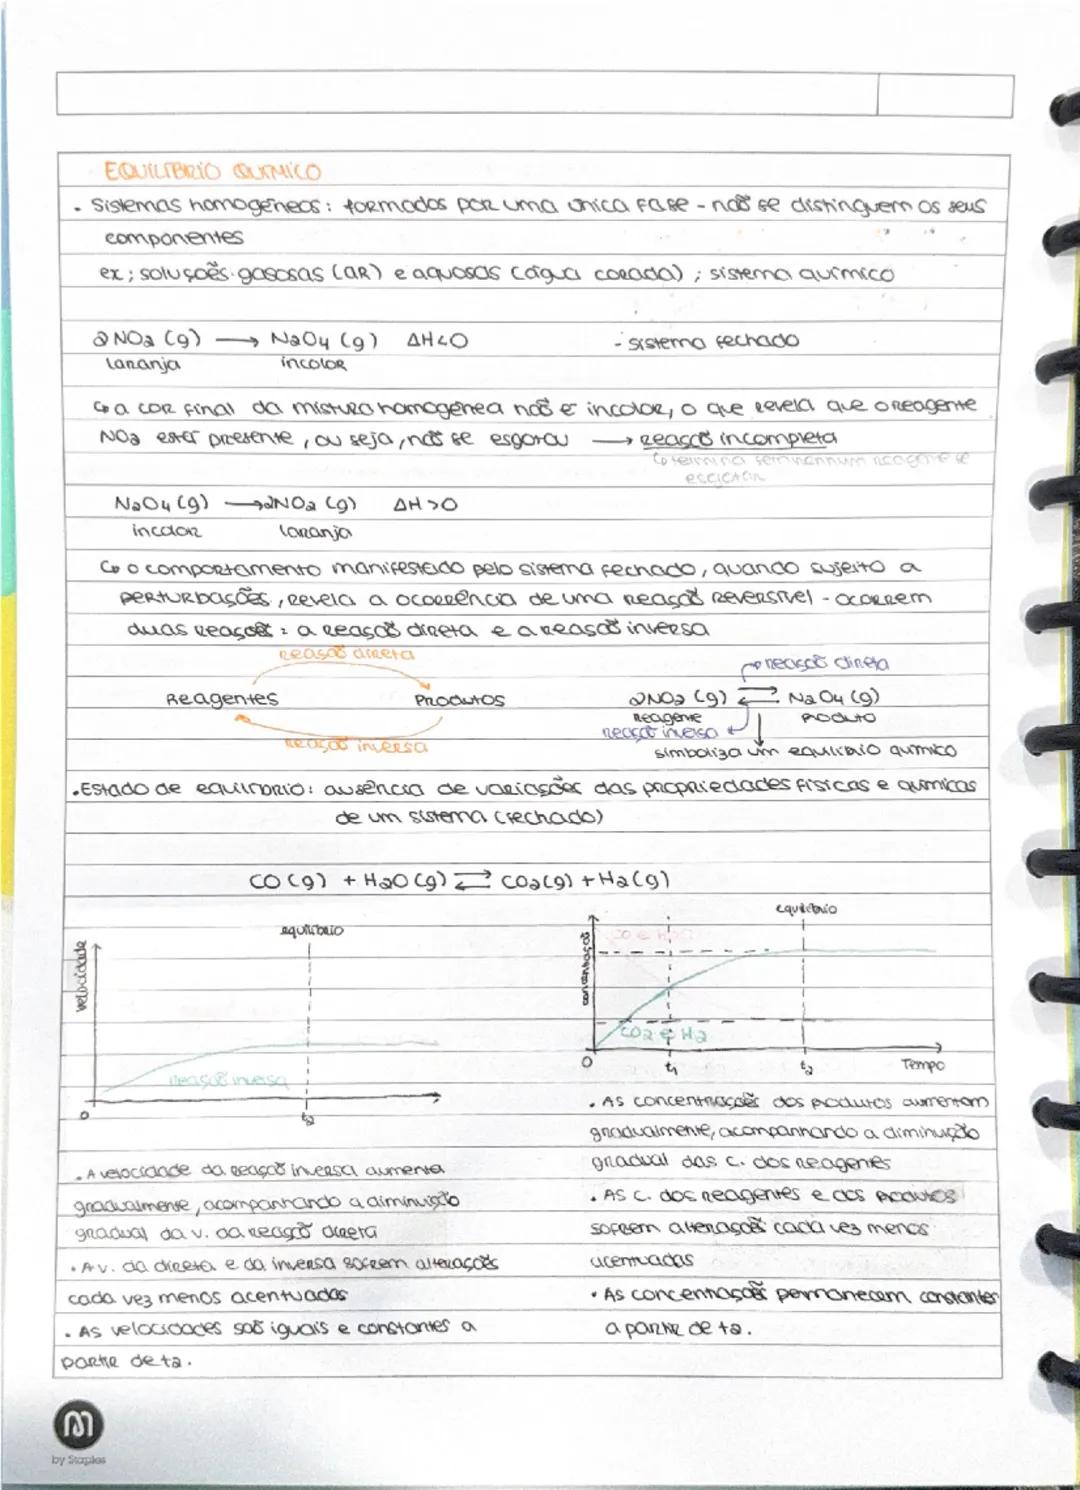 EQUILÍBRIO QUÍMICO
. Sistemas homogéneos: formados por uma única fase - não se distinguem os seus
componentes
ex; soluções gasosas (ar) e aquosas (água corada) ; sistema químico
2NO2 (g) → N2O4 (g) ΔH<0 - sistema fechado
laranja incolor
↳ a cor final da mistura homogénea não é incolor, o que revela que o reagente
NO2 está presente, ou seja, não se esgotou → reação incompleta
↳ termina sem nenhum reagente se
esgotar
N2O4 (g) → 2NO2 (g) ΔH>0
incolor laranja
↳ o comportamento manifestado pelo sistema fechado, quando sujeito a
perturbações, revela a ocorrência de uma reação reversível - ocorrem
duas reações: a reação direta e a reação inversa
reação direta
reação direta
Reagentes Produtos 2NO2 (g) ⇄ N2O4 (g)
reagente produto
reação inversa reação inversa
simboliza um equilíbrio químico
. Estado de equilíbrio: ausência de variações das propriedades físicas e químicas
de um sistema (fechado)
CO (g) + H2O (g) ⇄ CO2 (g) + H2 (g)
velocidade
equilíbrio
reação inversa
0 t2
concentração
equilíbrio
CO e H2O
CO2 e H2
0 t1 t2 Tempo
. A velocidade da reação inversa aumenta
gradualmente, acompanhando a diminuição
gradual da v. da reação direta
. A v. da direta e da inversa sofrem alterações
cada vez menos acentuadas
. As velocidades são iguais e constantes a
partir de t2.
. As concentrações dos produtos aumentam
gradualmente, acompanhando a diminuição
gradual das c. dos reagentes
. As c. dos reagentes e dos produtos
sofrem alterações cada vez menos
acentuadas
. As concentrações permanecem constantes
a partir de t2.
by Staples